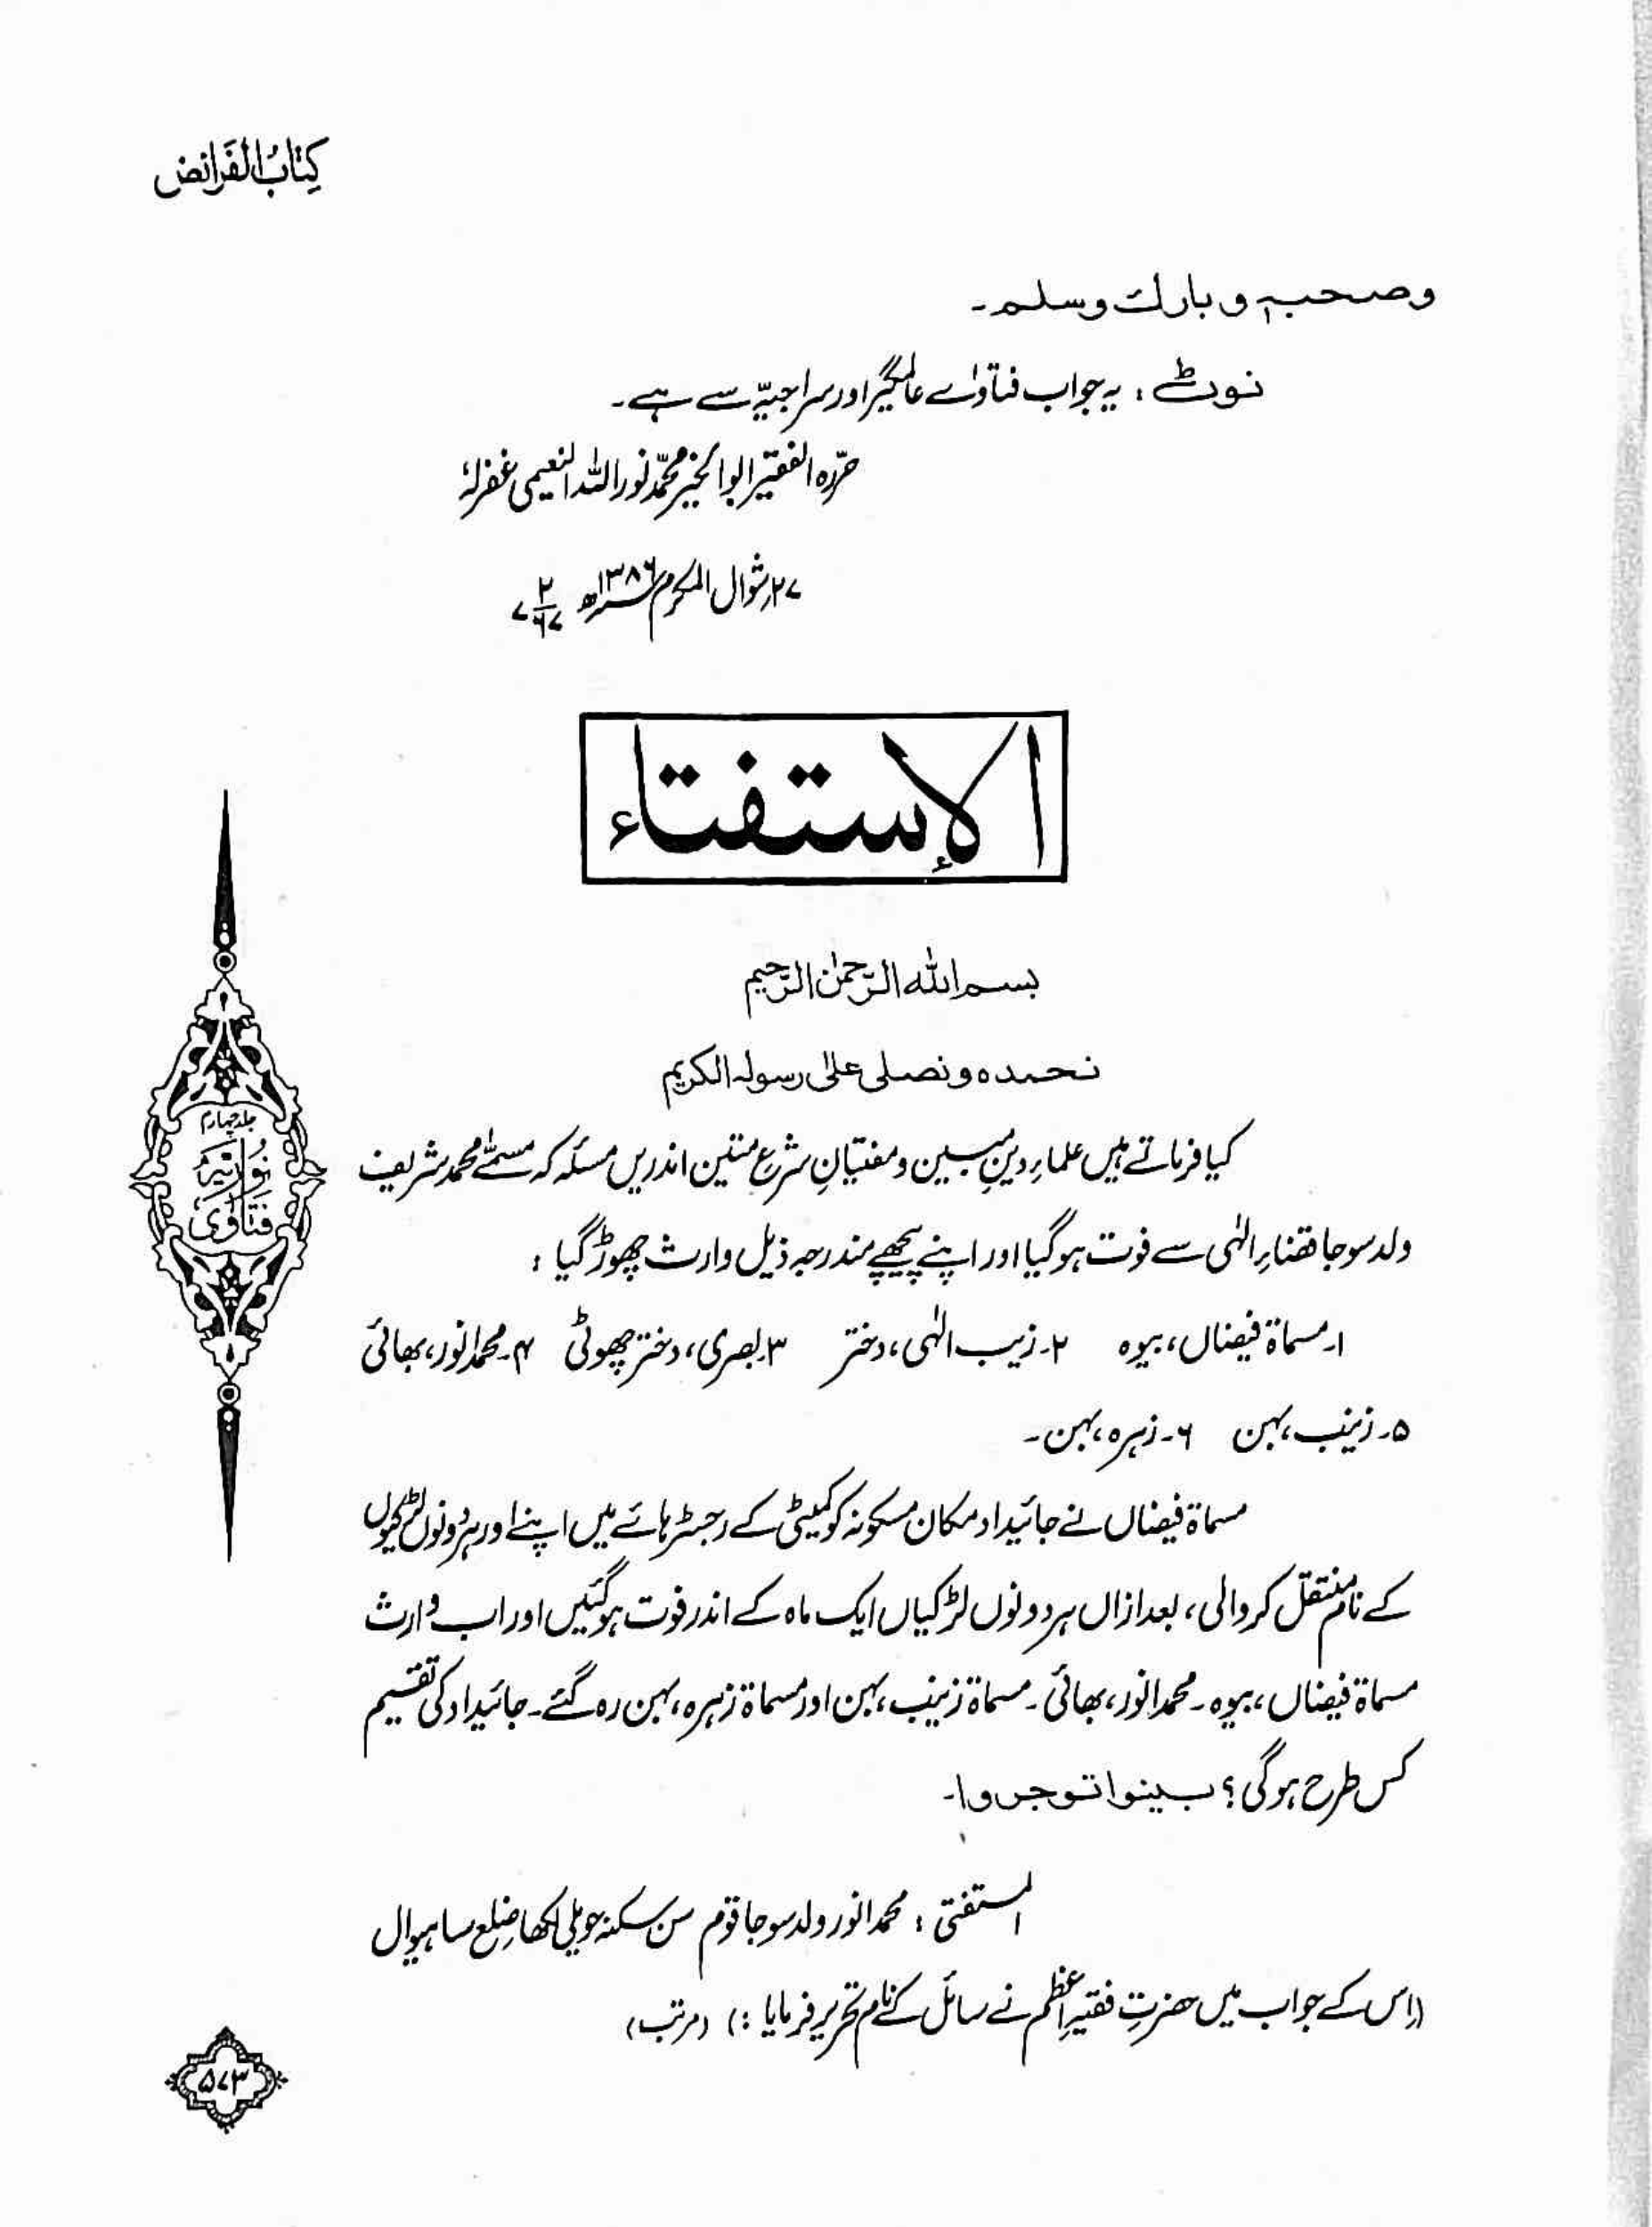 کِتابُ الفَرائض
وصحبہٖ وبارك وسلم۔
نوٹ : یہ جواب فتاوٰے عالمگیر اور سراجیّہ سے ہے۔
حرّرہ الفقیر ابوالخیر محمّد نور اللہ النعیمی غفرلہٗ
۲۷؍شوال المکرم ۱۳۸۶ھ ۷/۲/۶۷
الإستفتاء
بسم اللہ الرّحمٰن الرّحیم
نحمده ونصلی علیٰ رسولہ الکریم
کیا فرماتے ہیں علماءِ دینِ مبین و مفتیانِ شرع متین اندریں مسئلہ کہ مسمّٰے محمد شریف
ولد سوجا قضاءِ الٰہی سے فوت ہوگیا اور اپنے پیچھے مندرجہ ذیل وارث چھوڑ گیا :
۱۔ مسماۃ فیضاں، بیوہ ۲۔ زیب الٰہی، دختر ۳۔ بصری، دختر چھوٹی ۴۔ محمد انور، بھائی
۵۔ زینب، بہن ۶۔ زہرہ، بہن۔
مسماۃ فیضاں نے جائیداد مکان مسکونہ کو کمیٹی کے رجسٹر ہائے میں اپنے اور ہر دونوں لڑکیوں
کے نام منتقل کروالی، بعد ازاں ہر دونوں لڑکیاں ایک ماہ کے اندر فوت ہوگئیں اور اب وارث
مسماۃ فیضاں، بیوہ۔ محمد انور، بھائی۔ مسماۃ زینب، بہن اور مسماۃ زہرہ، بہن رہ گئے۔ جائیداد کی تقسیم
کس طرح ہوگی؟ بینوا توجروا۔
المستفتی : محمد انور ولد سوجا قوم سن سکنہ حویلی لکھا ضلع ساہیوال
(اِس کے جواب میں حضرتِ فقیہِ اعظم نے سائل کے نام تحریر فرمایا :) (مرتب)
جلد چہارم
نُوریَّہ
فتَاوٰی
۵۷۳